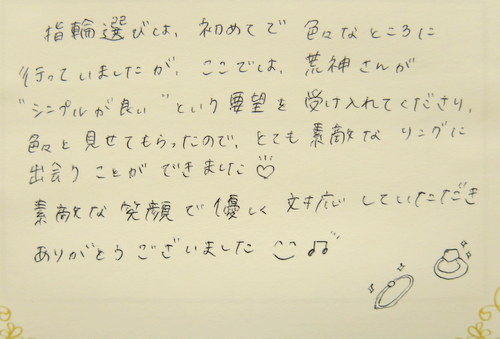 指輪選びは、初めてで 色々なところに
行っていましたが、ここでは、荒神さんが
"シンプルが良い"という要望を 受け入れてくださり、
色々と見せてもらったので、とても 素敵な リングに
出会うことが できました♡
素敵な 笑顔で優しく 対応していただき
ありがとうございました